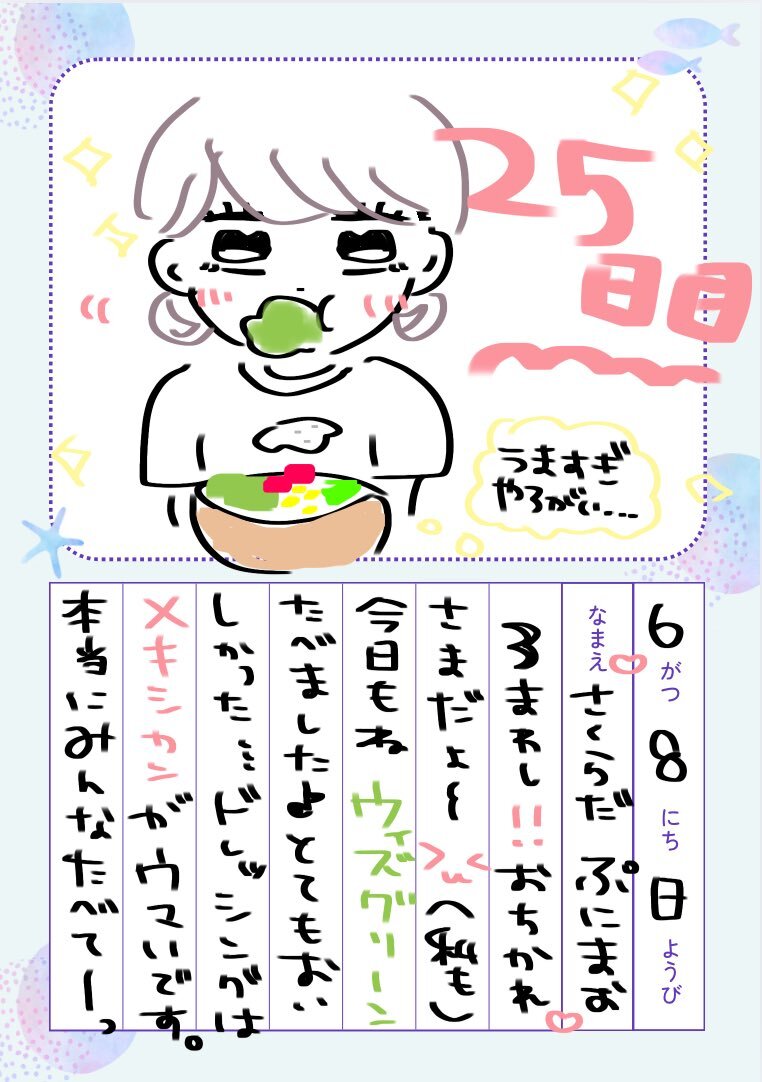 25
日目
うますぎ
やろがい....
6がつ8にち日ようび
なまえ さくらだ ぷにまお
3まわし!!おちかれ
さまだよ~>﹏<(私も)
今日もね ウィズグリーン
たべましたよとてもおい
しかった…ドレッシングは
メキシカンがウマいです。
本当にみんなたべてーっ